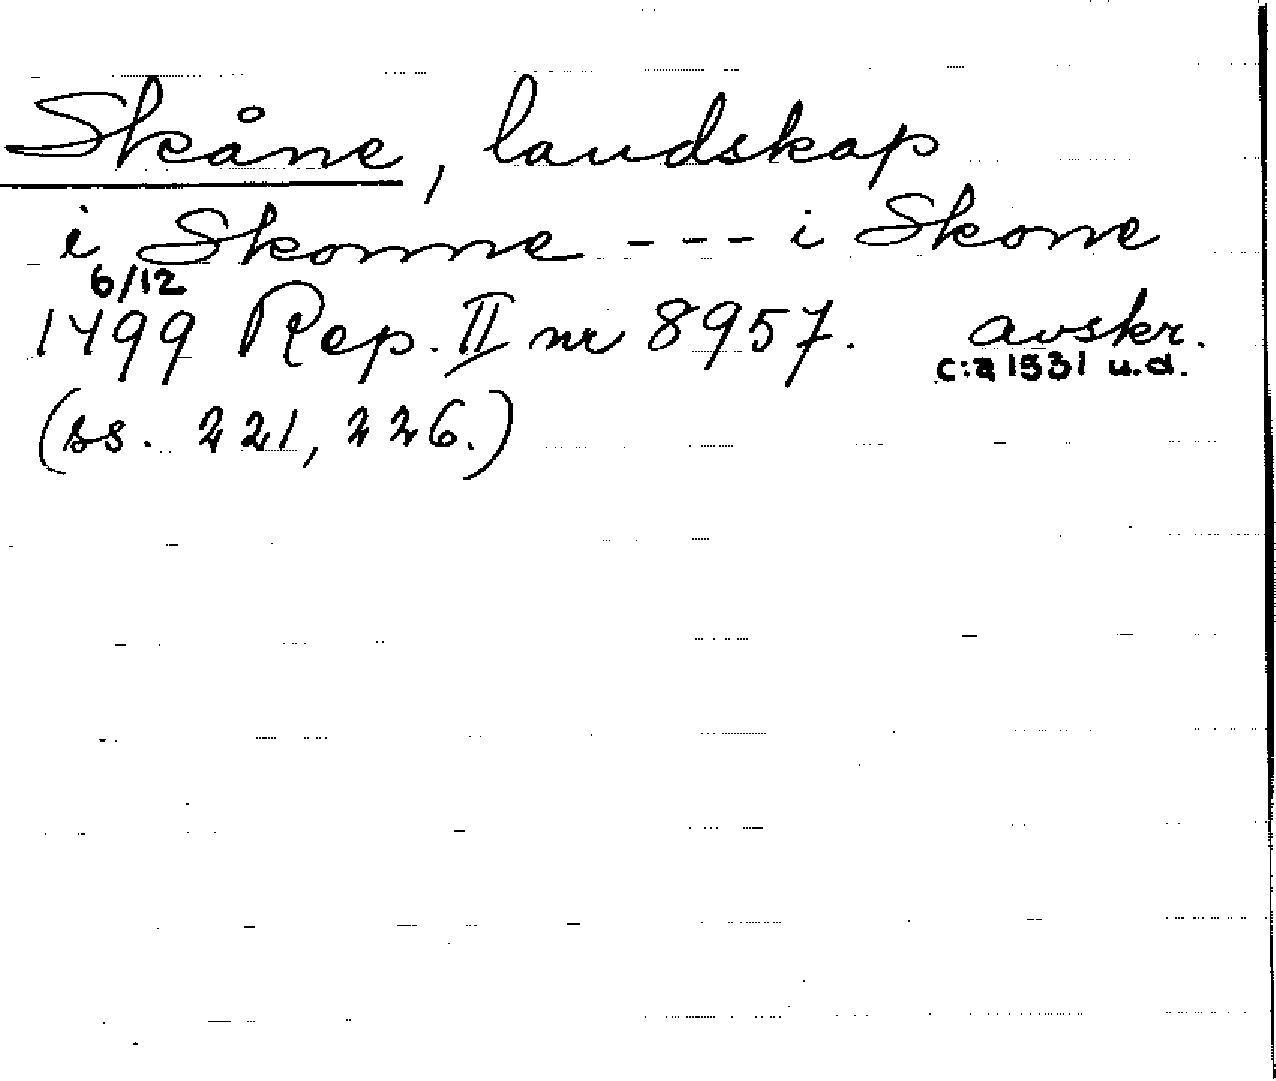 Skåne, landskap
i Skonne --- i Skone
6/12
1499 Rep. II nr 8957. avskr.
c:a 1531 u.d.
(ss. 221, 226.)